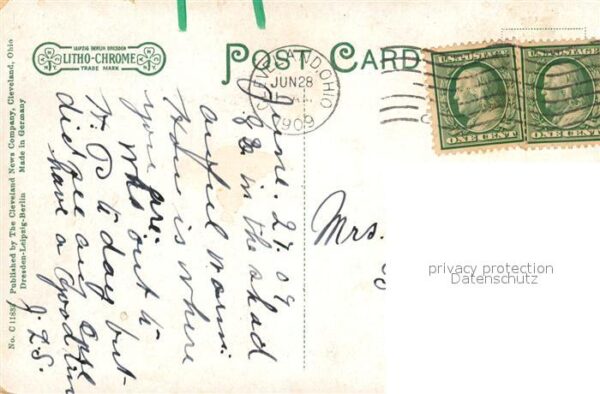 LEIPZIG BERLIN DRESDEN
LITHO-CHROME
TRADE MARK
POST CARD
CLEVELAND, OHIO
JUN 28
1909
U.S. POSTAGE
ONE CENT
U.S. POSTAGE
ONE CENT
No. C 11883 Published by The Cleveland News Company, Cleveland, Ohio
Dresden-Leipzig-Berlin Made in Germany
June. 27. 09
92 in the shad
awful warm.
How is where
you are.
Was out to
W. P. to day but
did see any one
have a good time
J.L.S.
Mrs.
privacy protection
Datenschutz